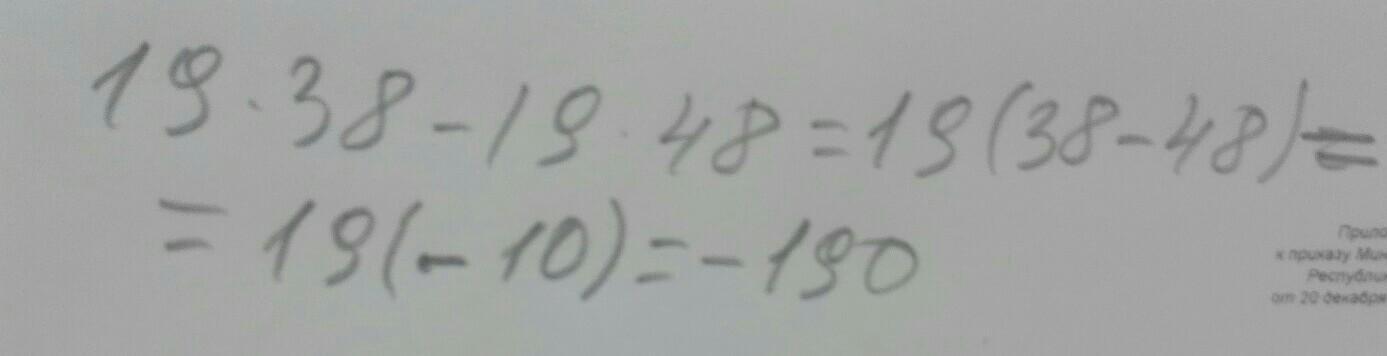 19·38-19·48=19(38-48)=
=19(-10)=-190
к приказу Мин
Республи
от 20 декабря